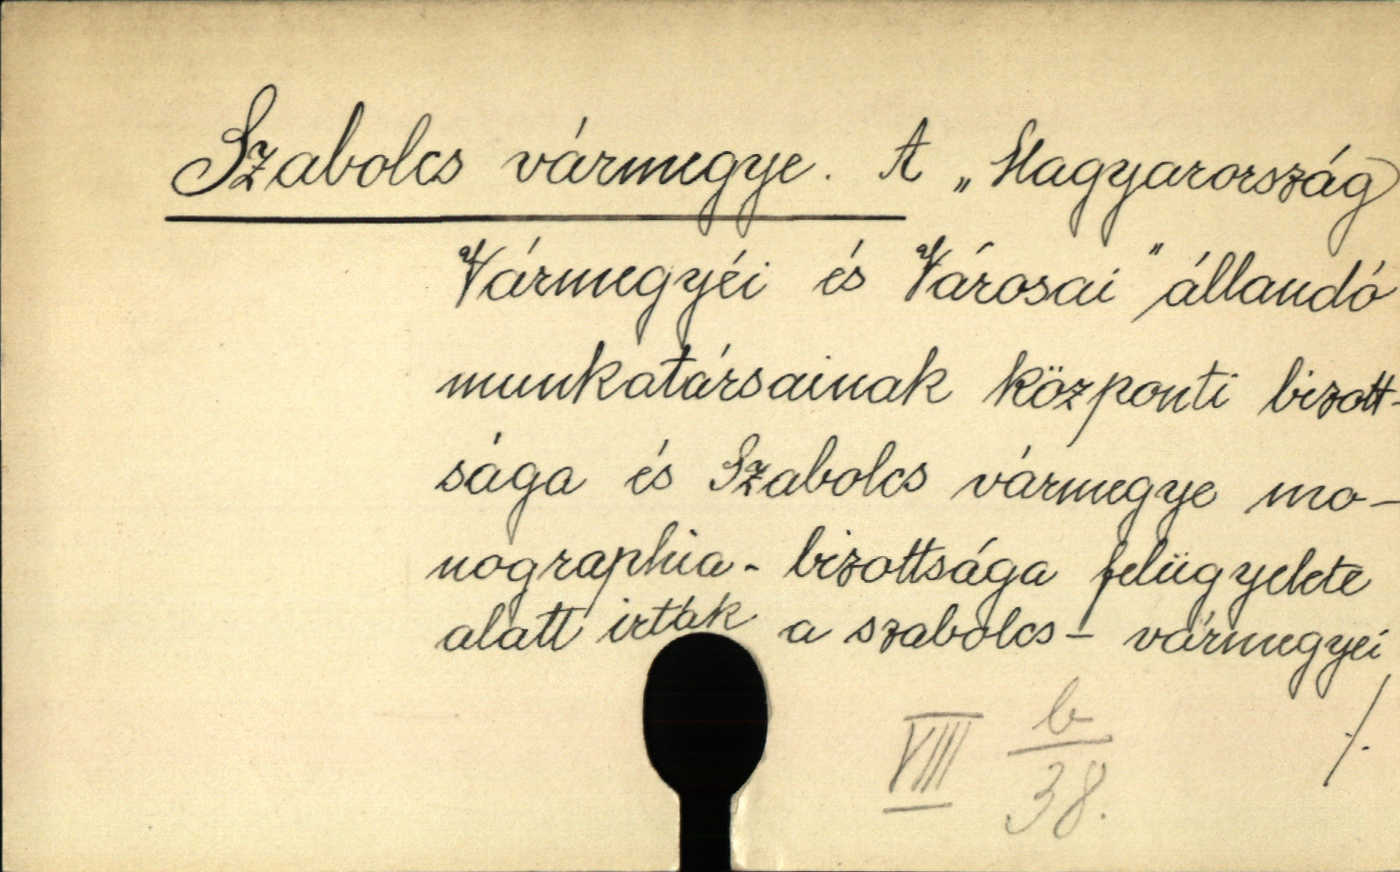 Szabolcs vármegye. A „Magyarország
Vármegyéi és Városai" állandó
munkatársainak központi bizott-
sága és Szabolcs vármegye mo-
nographia-bizottsága felügyelete
alatt irták a szabolcs-vármegyei
VIII b/38.
./.